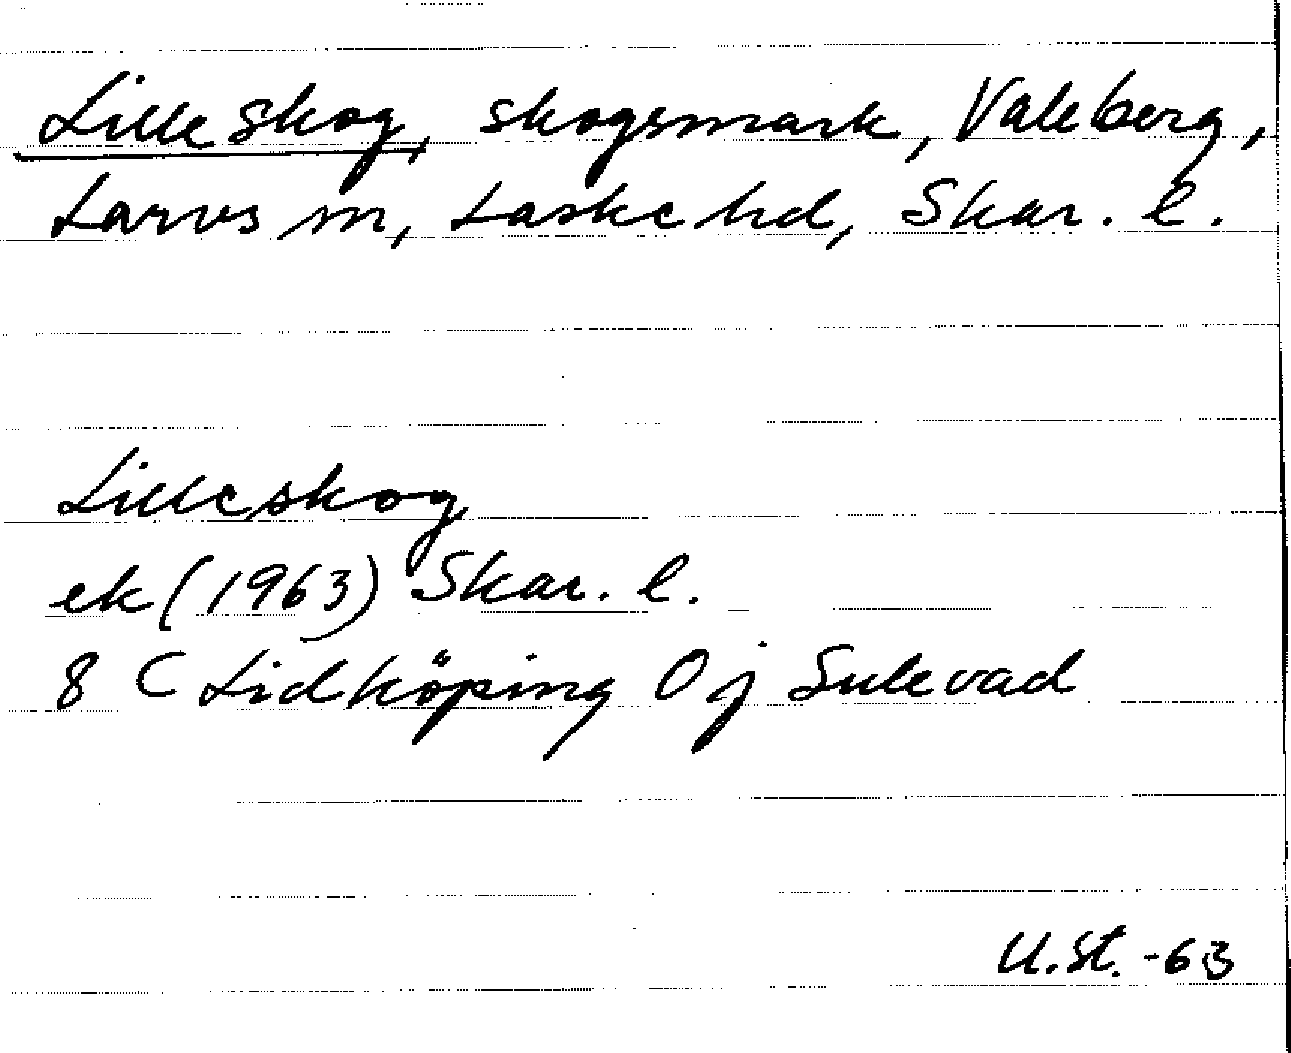 Lilleskog, skogsmark, Valeberg,
Larvs sn, Laske hd, Skar. l.
Lilleskog
ek (1963) Skar. l.
8 C Lidköping 0 j Sulevad
U.St. -63